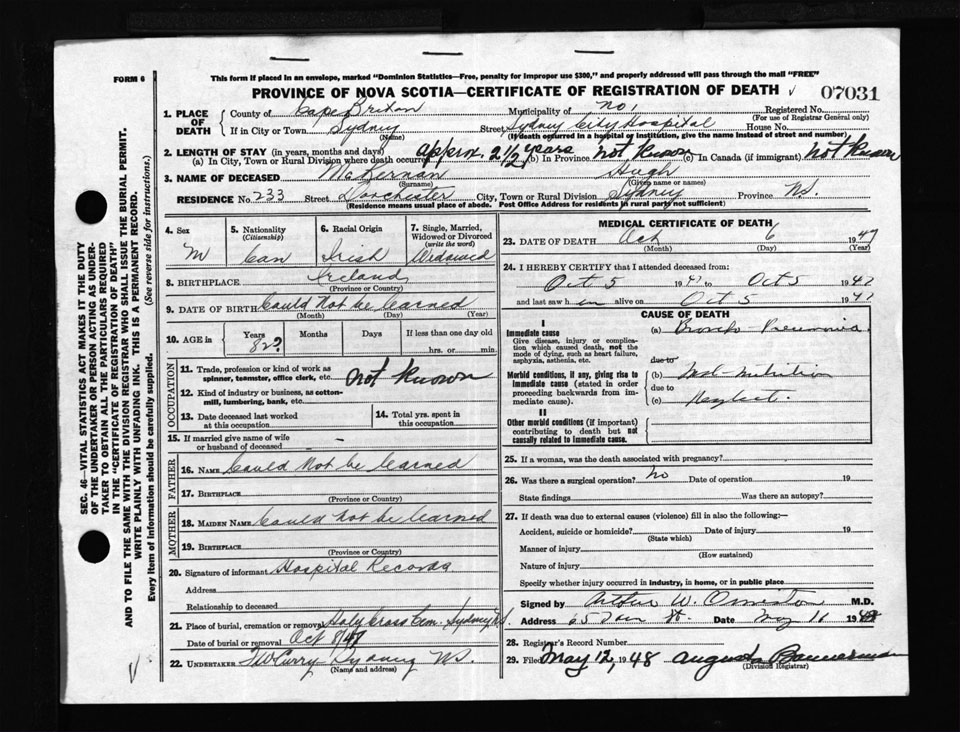 FORM 6
This form if placed in an envelope, marked "Dominion Statistics—Free, penalty for improper use $300," and properly addressed will pass through the mail "FREE"
PROVINCE OF NOVA SCOTIA—CERTIFICATE OF REGISTRATION OF DEATH 07031
1. PLACE OF DEATH
County of Cape Breton Municipality of No. 1 Registered No.
(For use of Registrar General only)
If in City or Town Sydney Street Sydney City Hospital House No.
(Name) (If death occurred in a hospital or institution, give the name instead of street and number)
2. LENGTH OF STAY (in years, months and days)
(a) In City, Town or Rural Division where death occurred approx. 2 1/2 years (b) In Province not known (c) In Canada (if immigrant) not known
3. NAME OF DECEASED McKernan Hugh
(Surname) (Given name or names)
RESIDENCE No. 233 Street Dorchester City, Town or Rural Division Sydney Province N.S.
(Residence means usual place of abode. Post Office Address for residents in rural parts not sufficient)
4. Sex M
5. Nationality (Citizenship) Can
6. Racial Origin Irish
7. Single, Married, Widowed or Divorced (write the word) Widowed
8. BIRTHPLACE Ireland
(Province or Country)
9. DATE OF BIRTH Could not be learned
(Month) (Day) (Year)
10. AGE in Years 82? Months Days If less than one day old
hrs. or min.
OCCUPATION
11. Trade, profession or kind of work as spinner, teamster, office clerk, etc. not known
12. Kind of industry or business, as cotton-mill, lumbering, bank, etc.
13. Date deceased last worked at this occupation
14. Total yrs. spent in this occupation
15. If married give name of wife or husband of deceased –
FATHER
16. NAME Could not be learned
17. BIRTHPLACE
(Province or Country)
MOTHER
18. MAIDEN NAME Could not be learned
19. BIRTHPLACE
(Province or Country)
20. Signature of informant Hospital Records
Address
Relationship to deceased
21. Place of burial, cremation or removal Holy Cross Cem. Sydney N.S.
Date of burial or removal Oct 8/47
22. UNDERTAKER Curry Sydney N.S.
(Name and address)
MEDICAL CERTIFICATE OF DEATH
23. DATE OF DEATH Oct 6 1947
(Month) (Day)
24. I HEREBY CERTIFY that I attended deceased from:
Oct 5 1947 to Oct 5 1947
and last saw him alive on Oct 5 1947
CAUSE OF DEATH
I
Immediate cause
Give disease, injury or complication which caused death, not the mode of dying, such as heart failure, asphyxia, asthenia, etc.
(a) Broncho-Pneumonia
due to
Morbid conditions, if any, giving rise to immediate cause (stated in order proceeding backwards from immediate cause).
(b) Mal-nutrition
due to
(c) Neglect.
II
Other morbid conditions (if important) contributing to death but not causally related to immediate cause.
25. If a woman, was the death associated with pregnancy?
26. Was there a surgical operation? No Date of operation 19
State findings Was there an autopsy?
27. If death was due to external causes (violence) fill in also the following:—
Accident, suicide or homicide? Date of injury 19
(State which)
Manner of injury
(How sustained)
Nature of injury
Specify whether injury occurred in industry, in home, or in public place
Signed by Arthur W. Ormiston M.D.
Address 65 St. Date May 11 1948
28. Registrar's Record Number
29. Filed May 12, 1948 Augusta Bannerman
(Division Registrar)
SEC. 46—VITAL STATISTICS ACT MAKES IT THE DUTY
OF THE UNDERTAKER OR PERSON ACTING AS UNDER-
TAKER TO OBTAIN ALL THE PARTICULARS REQUIRED
IN THE "CERTIFICATE OF REGISTRATION OF DEATH"
AND TO FILE THE SAME WITH THE DIVISION REGISTRAR WHO SHALL ISSUE THE BURIAL PERMIT.
WRITE PLAINLY WITH UNFADING INK. THIS IS A PERMANENT RECORD.
Every item of information should be carefully supplied. (See reverse side for instructions.)